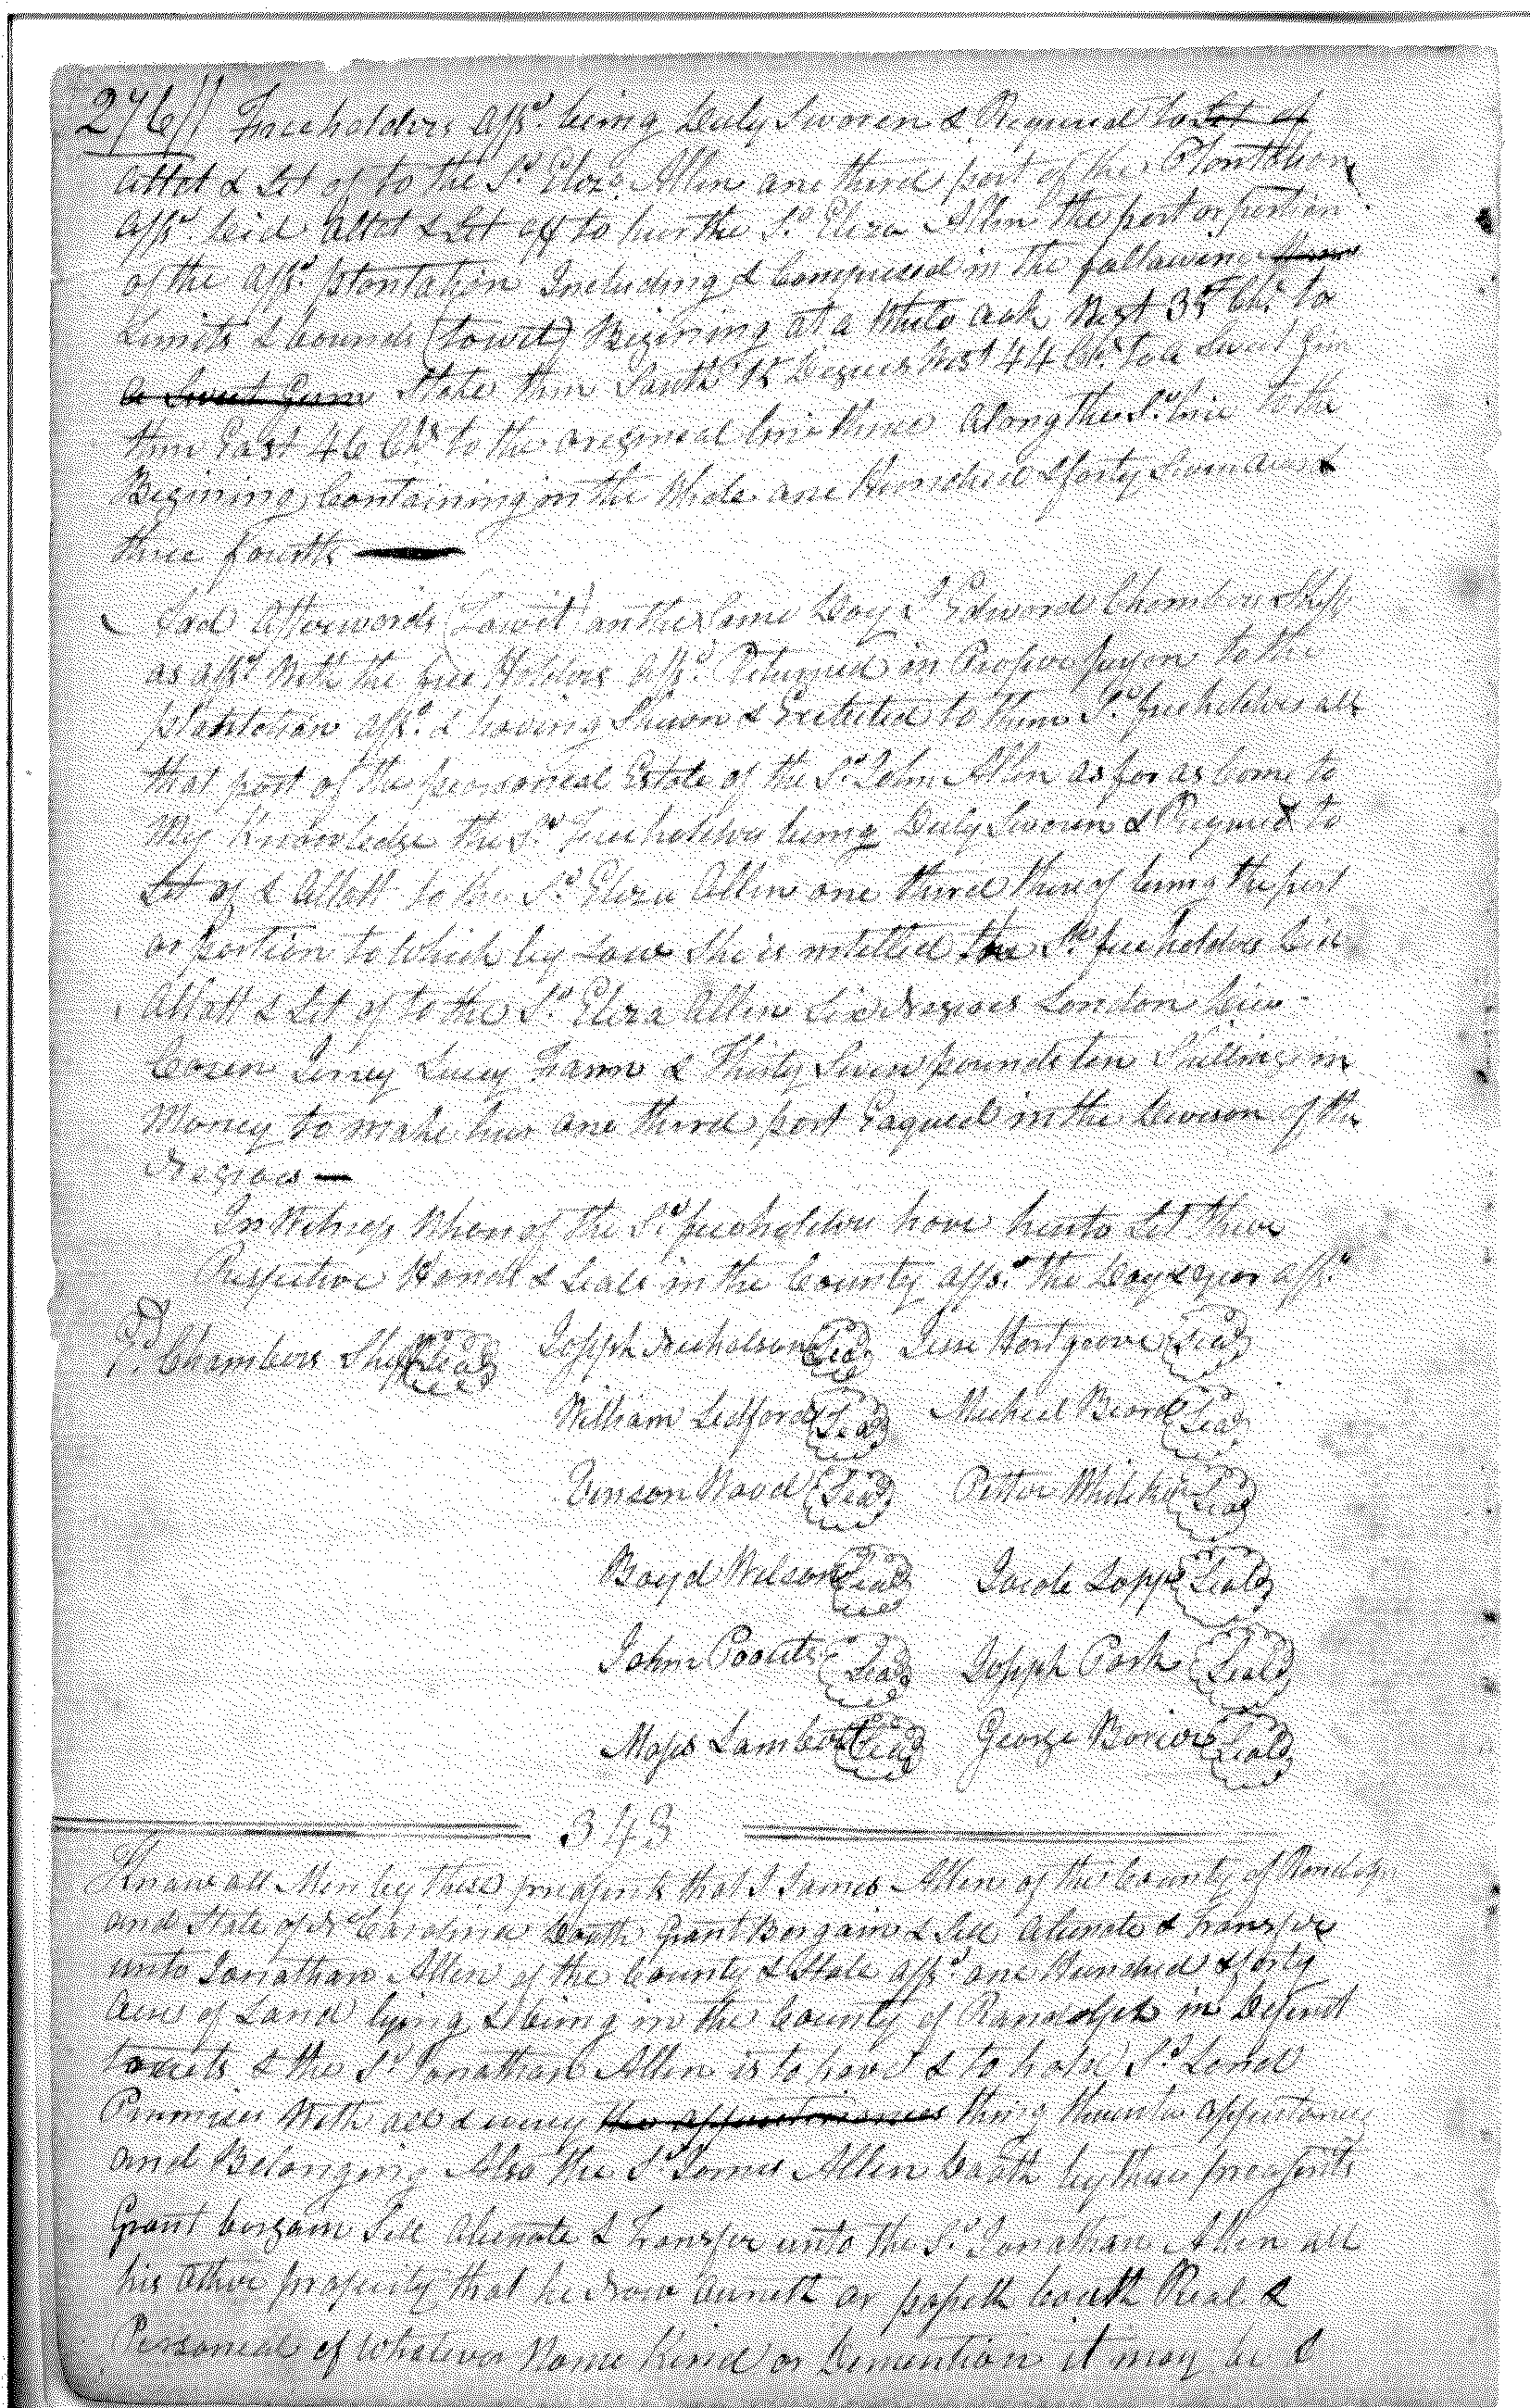 276 // Freeholders Affsd. being Duly Sworen & Required to Set of
Allot & Set of to the Sd. Eliza Allin one third part of the Plontation
Affsd. did Allot & Set off to her the Sd. Eliza Allin the part or portion
of the Affsd. plontation Including & Comprised in the following
Limits & bounds (towit) Begining at a White oak West 35 Chs. to
a Sweet Gum Stake then South 12 Degrees West 44 Chs. to a Sweet Gum
then East 46 Chs. to the oreginal line thence Along the Sd. line to the
Begining Containing in the Whole one Hundred & forty Seven acres &
three fourths
And Afterwords (Towit) on the Same Day I Edword Chambers Shff
as affsd. With the free Holders Affsd. Returned in Proper person to the
plantation affsd. & having Shewn & Exebited to them Sd. freeholders all
that part of the personeal Estate of the Sd. John Allin as for as Come to
My Knowledge the Sd. freeholders being Duly Sworen & Required to
Set of & Allott to the Sd. Eliza Allin one third thereof being the part
or portion to Which by Law She is intitled the Sd. freeholders Did
Allott & Set of to the Sd. Eliza Allin Six Negroes London
Jenny Lucy Fann & Thirty Seven pounds ten Shillings in
Money to make her one third part Eaquel in the Devison of the
Negroes
In Witness Whereof the Sd. freeholders have hereto Set there
Respective Hands & Seals in the County affsd. the Day & year affsd.
Ed. Chambers Shff Seal Joseph Nicholson Seal Jesse Hartgrove Seal
William Ledford Seal Micheel Beard Seal
Vinson Wood Seal Petter Whitiker Seal
Boyd Wilson Seal Jacob Lopp Seal
John Coouts Seal Joseph Park Seal
Moses Lambert Seal George Seal
343
Know all Men by these presents that I James Allin of the County of Randolph
and State of No Carolina Doath Grant Bargain & Sell Alienate & Transfer
unto Jonathan Allin of the County & State Affsd. one Hundred & forty
Acres of Land lying & being in the County of Randolph in Deferent
tracts & the Sd. Jonathan Allin is to have & to hold Sd. Land
Premises With all & every the appurtinances thing thereunto
and Belonging Also the Sd. James Allin Doath by these presents
Grant bargain Sell Alienate & Transfer unto the Sd. Jonathan Allin all
his other property that he Now owneth or posseth boath Real &
Personeal of Whatever Name Kind or Demention it may be &